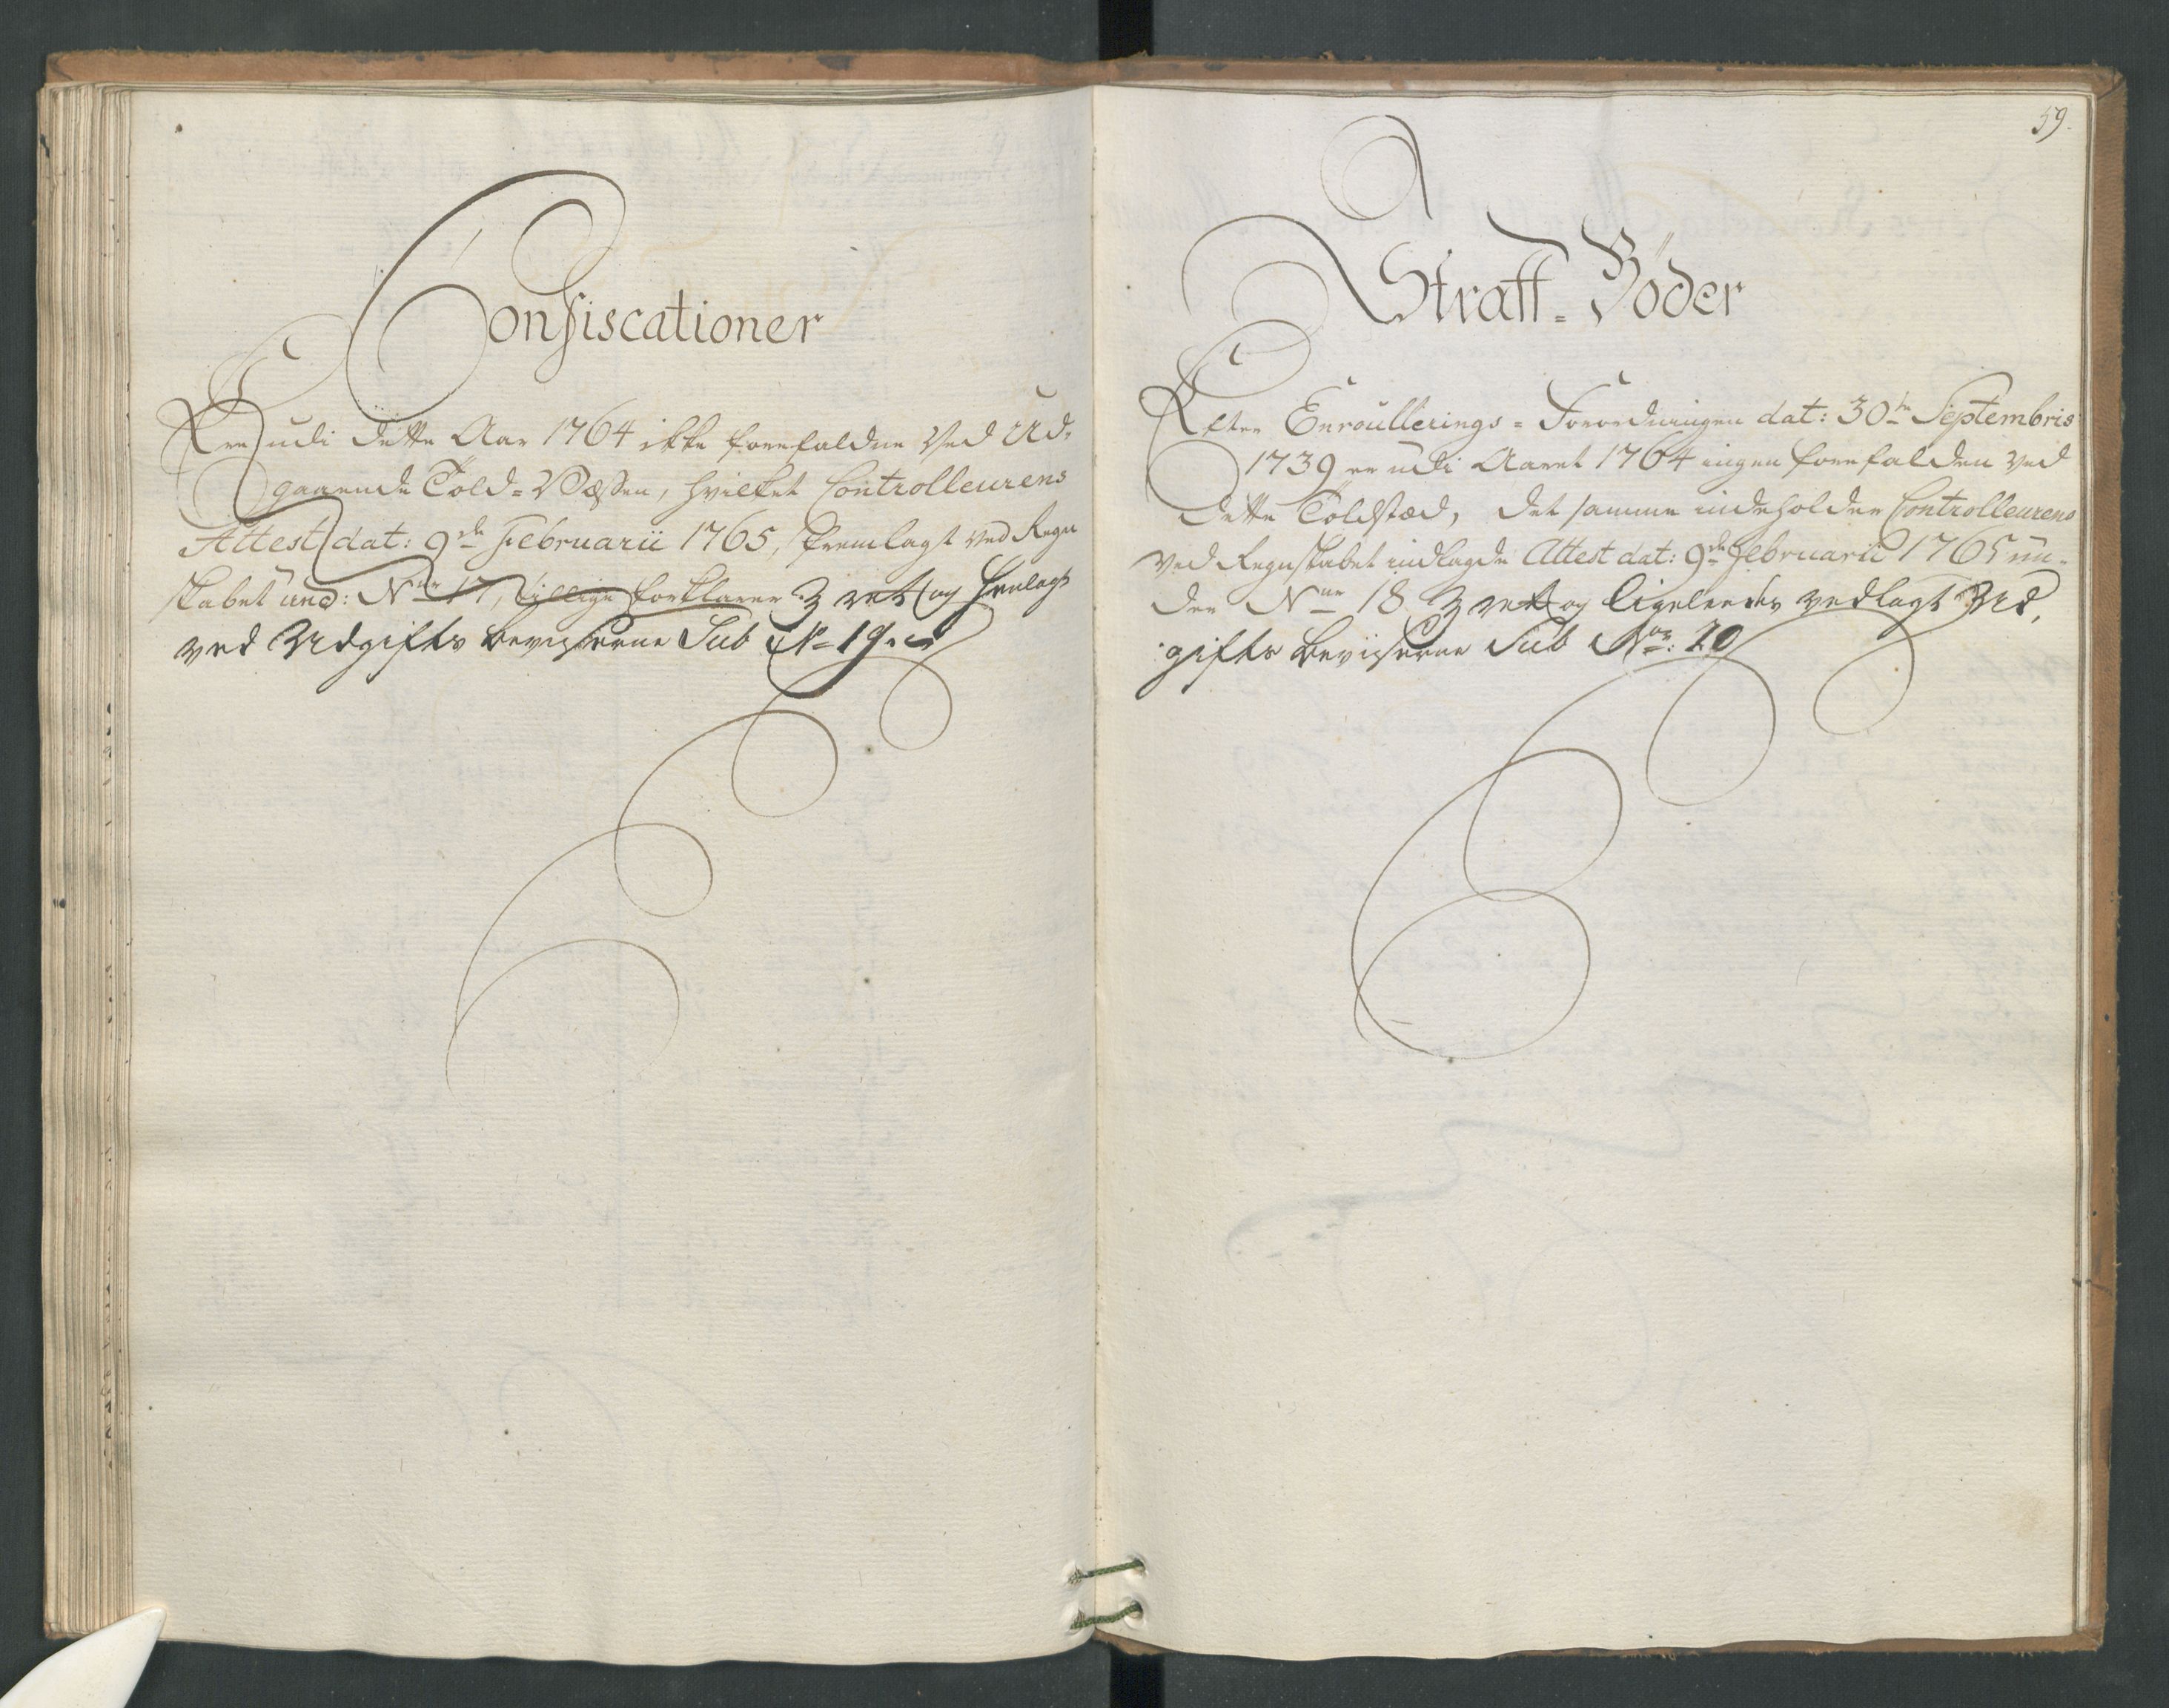 Confiscationer
Ere udi dette Aar 1764 ikke forefaldne Ved Ud-
gaaende Told-Væssen, hvilket Controlleurens
Attest dat: 9de Februarii 1765, fremlagt ved Regn
skabet und: Nur 17, tillige forklarer og henlagt
ved Udgifts beviserne Sub No 19
59.
Straff-Böder
Efter Enroullerings-Forordningen dat: 30te Septembris
1739 er udi Aaret 1764 ingen forefalden ved
dette Toldstæd, det samme indeholder Controlleurens
ved Regnskabet indlagde Attest dat: 9de Februarii 1765 un-
der Nur 18 og ligeleedes vedlagt Ud,
gifts beviiserne Sub Nor: 20